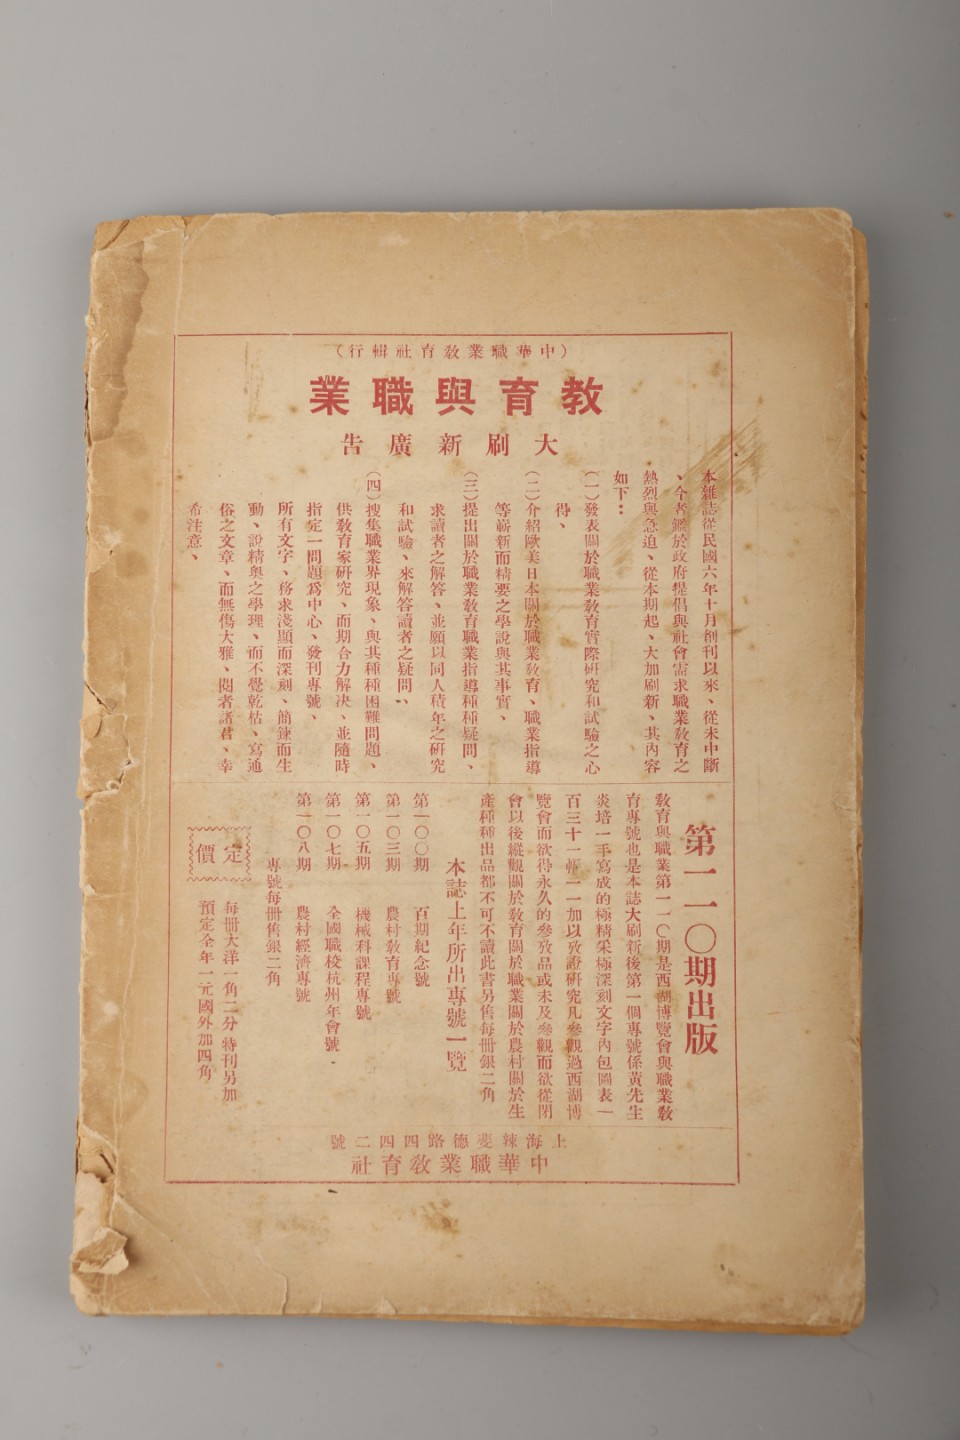 （中華職業教育社輯行）
教育與職業
大刷新廣告
本雜誌從民國六年十月創刊以來、從未中斷
、今者鑑於政府提倡與社會需求職業教育之
熱烈與急迫、從本期起、大加刷新、其內容
如下：
（一）發表關於職業教育實際研究和試驗之心
得、
（二）介紹歐美日本關於職業教育、職業指導
等嶄新而精要之學說與其事實、
（三）提出關於職業教育職業指導種種疑問、
求讀者之解答、並願以同人積年之研究
和試驗、來解答讀者之疑問、
（四）搜集職業界現象、與其種種困難問題、
供教育家研究、而期合力解决、並隨時
指定一問題爲中心、發刊專號、
所有文字、務求淺顯而深刻、簡鍊而生
動、說精奥之學理、而不覺乾枯、寫通
俗之文章、而無傷大雅、閱者諸君、幸
希注意、
第一一〇期出版
教育與職業第一一〇期是西湖博覽會與職業教
育專號也是本誌大刷新後第一個專號係黃先生
炎培一手寫成的極精采極深刻文字內包圖表一
百三十一幀一一加以攷證研究凡參觀過西湖博
覽會而欲得永久的參攷品或未及參觀而欲從閉
會以後縱觀關於教育關於職業關於農村關於生
產種種出品都不可不讀此書另售每冊銀二角
本誌上年所出專號一覽
第一〇〇期　百期紀念號
第一〇三期　農村教育專號
第一〇五期　機械科課程專號
第一〇七期　全國職校杭州年會號
第一〇八期　農村經濟專號
專號每冊售銀二角
定價
每冊大洋一角二分特刊另加
預定全年一元國外加四角
上海辣斐德路四四二號
中華職業教育社